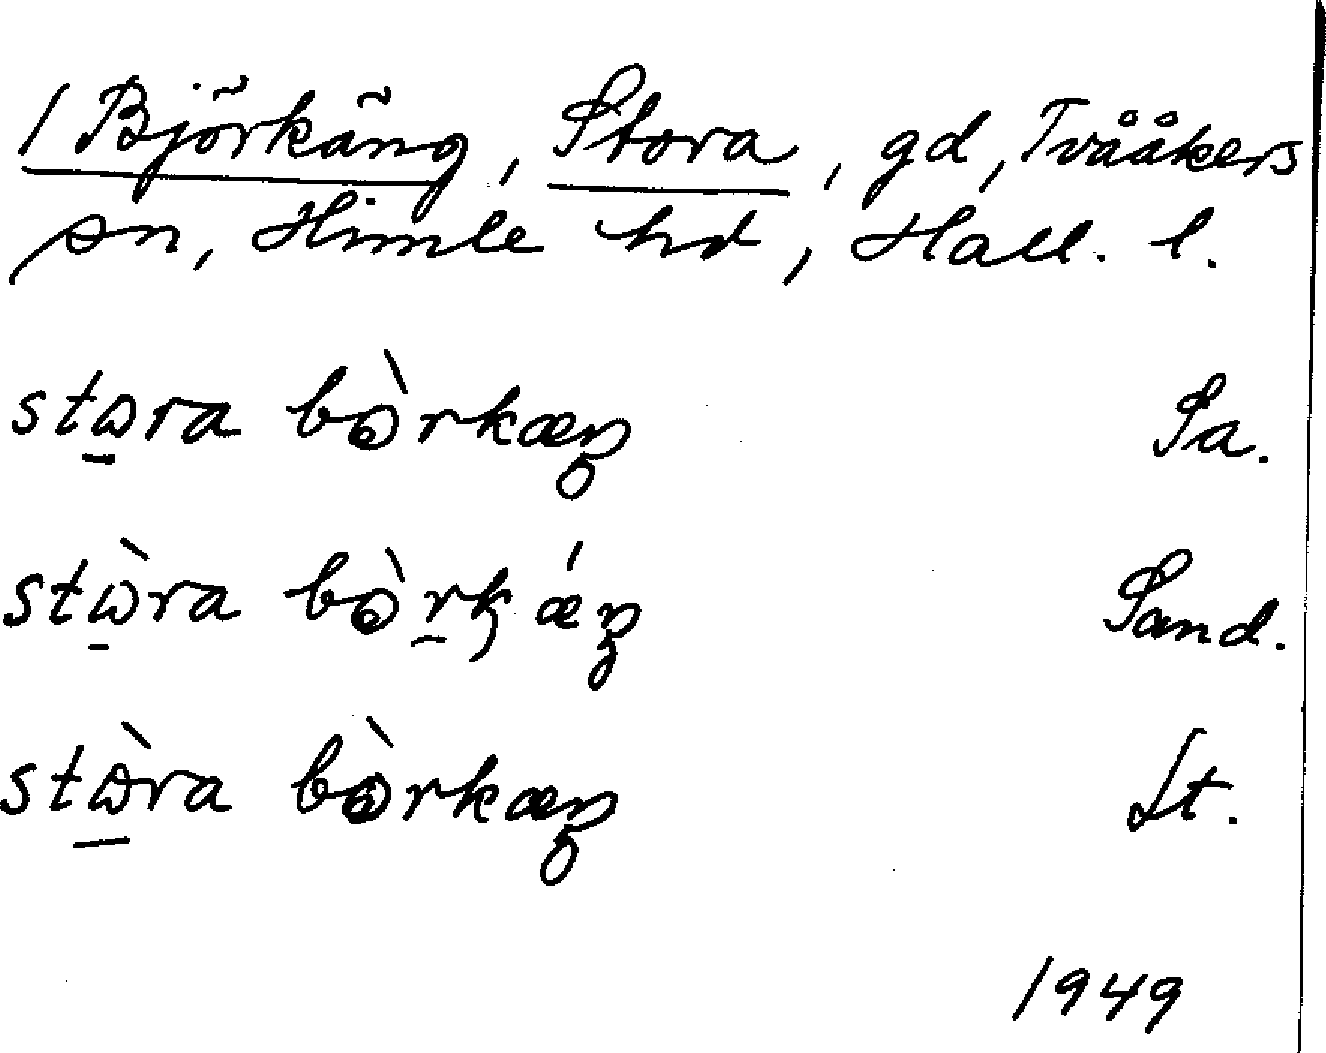 1 Björkäng, Stora, gd, Tvååkers
sn, Himle hd, Hall. l.
stω̱ra bɔ̀rkæŋ Sa.
stὼ̱ra bɔ̀ṟkǽŋ Sand.
stὼ̱ra bɔ̀rkæŋ Lt.
1949